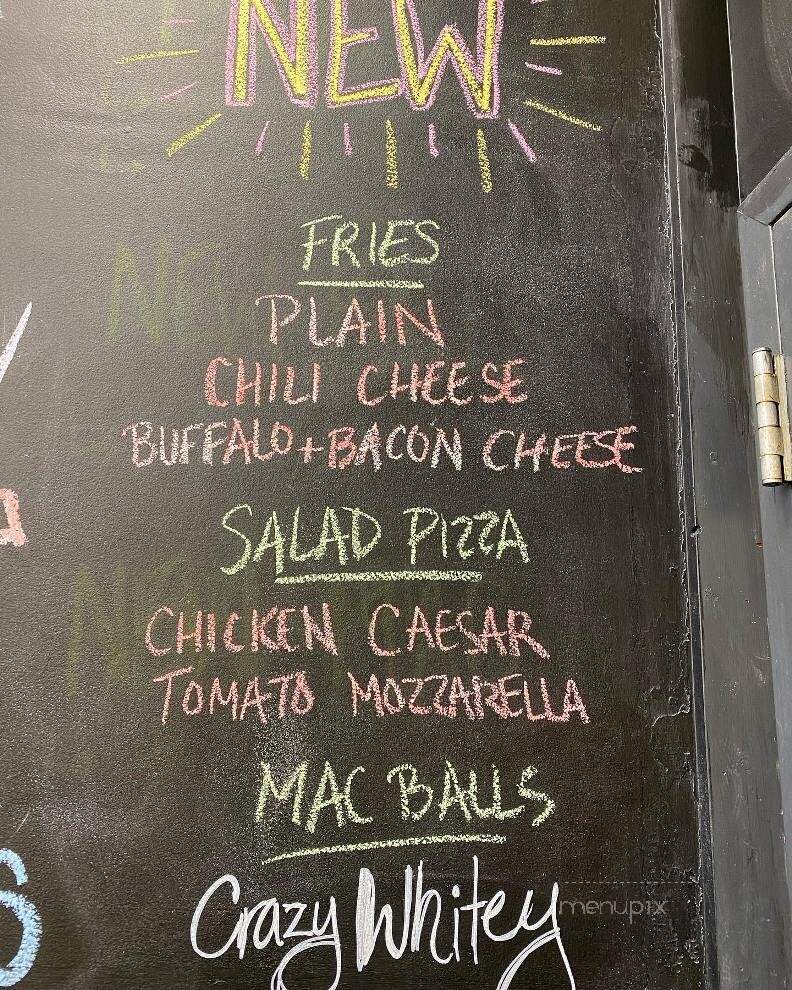 NEW
FRIES
PLAIN
CHILI CHEESE
BUFFALO+BACON CHEESE
SALAD PIZZA
CHICKEN CAESAR
TOMATO MOZZARELLA
MAC BALLS
Crazy Whitey
menupix